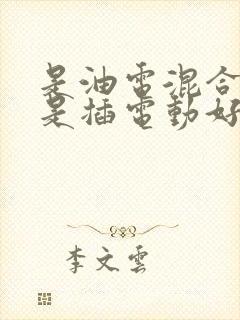 是油電混合
是插電動好
李文雲